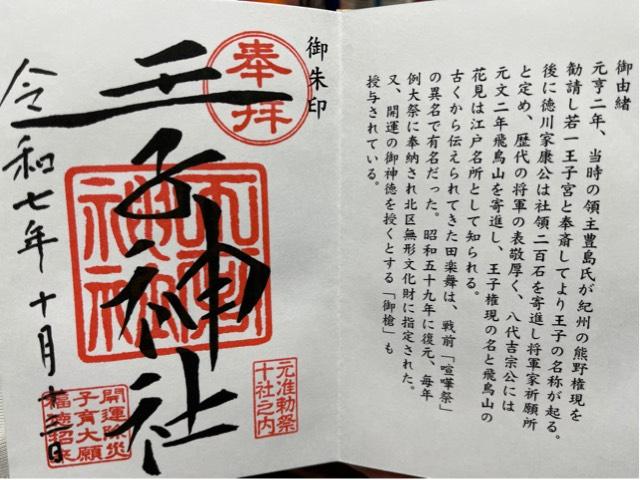 御由緒
元亨二年、当時の領主豊島氏が紀州の熊野権現を
勧請し若一王子宮と奉斎してより王子の名称が起る。
後に徳川家康公は社領二百石を寄進し将軍家祈願所
と定め、歴代の将軍の表敬厚く、八代吉宗公には
元文二年飛鳥山を寄進し、王子権現の名と飛鳥山の
花見は江戸名所として知られる。
古くから伝えられてきた田楽舞は、戦前「喧嘩祭」
の異名で有名だった。昭和五十九年に復元、毎年
例大祭に奉納され北区無形文化財に指定された。
又、開運の御神徳を授くとする「御槍」も
授与されている。
御朱印
奉拝
元准勅祭
十社之内
王子神社
開運除災
子育大願
福徳招来
令和七年十月十三日